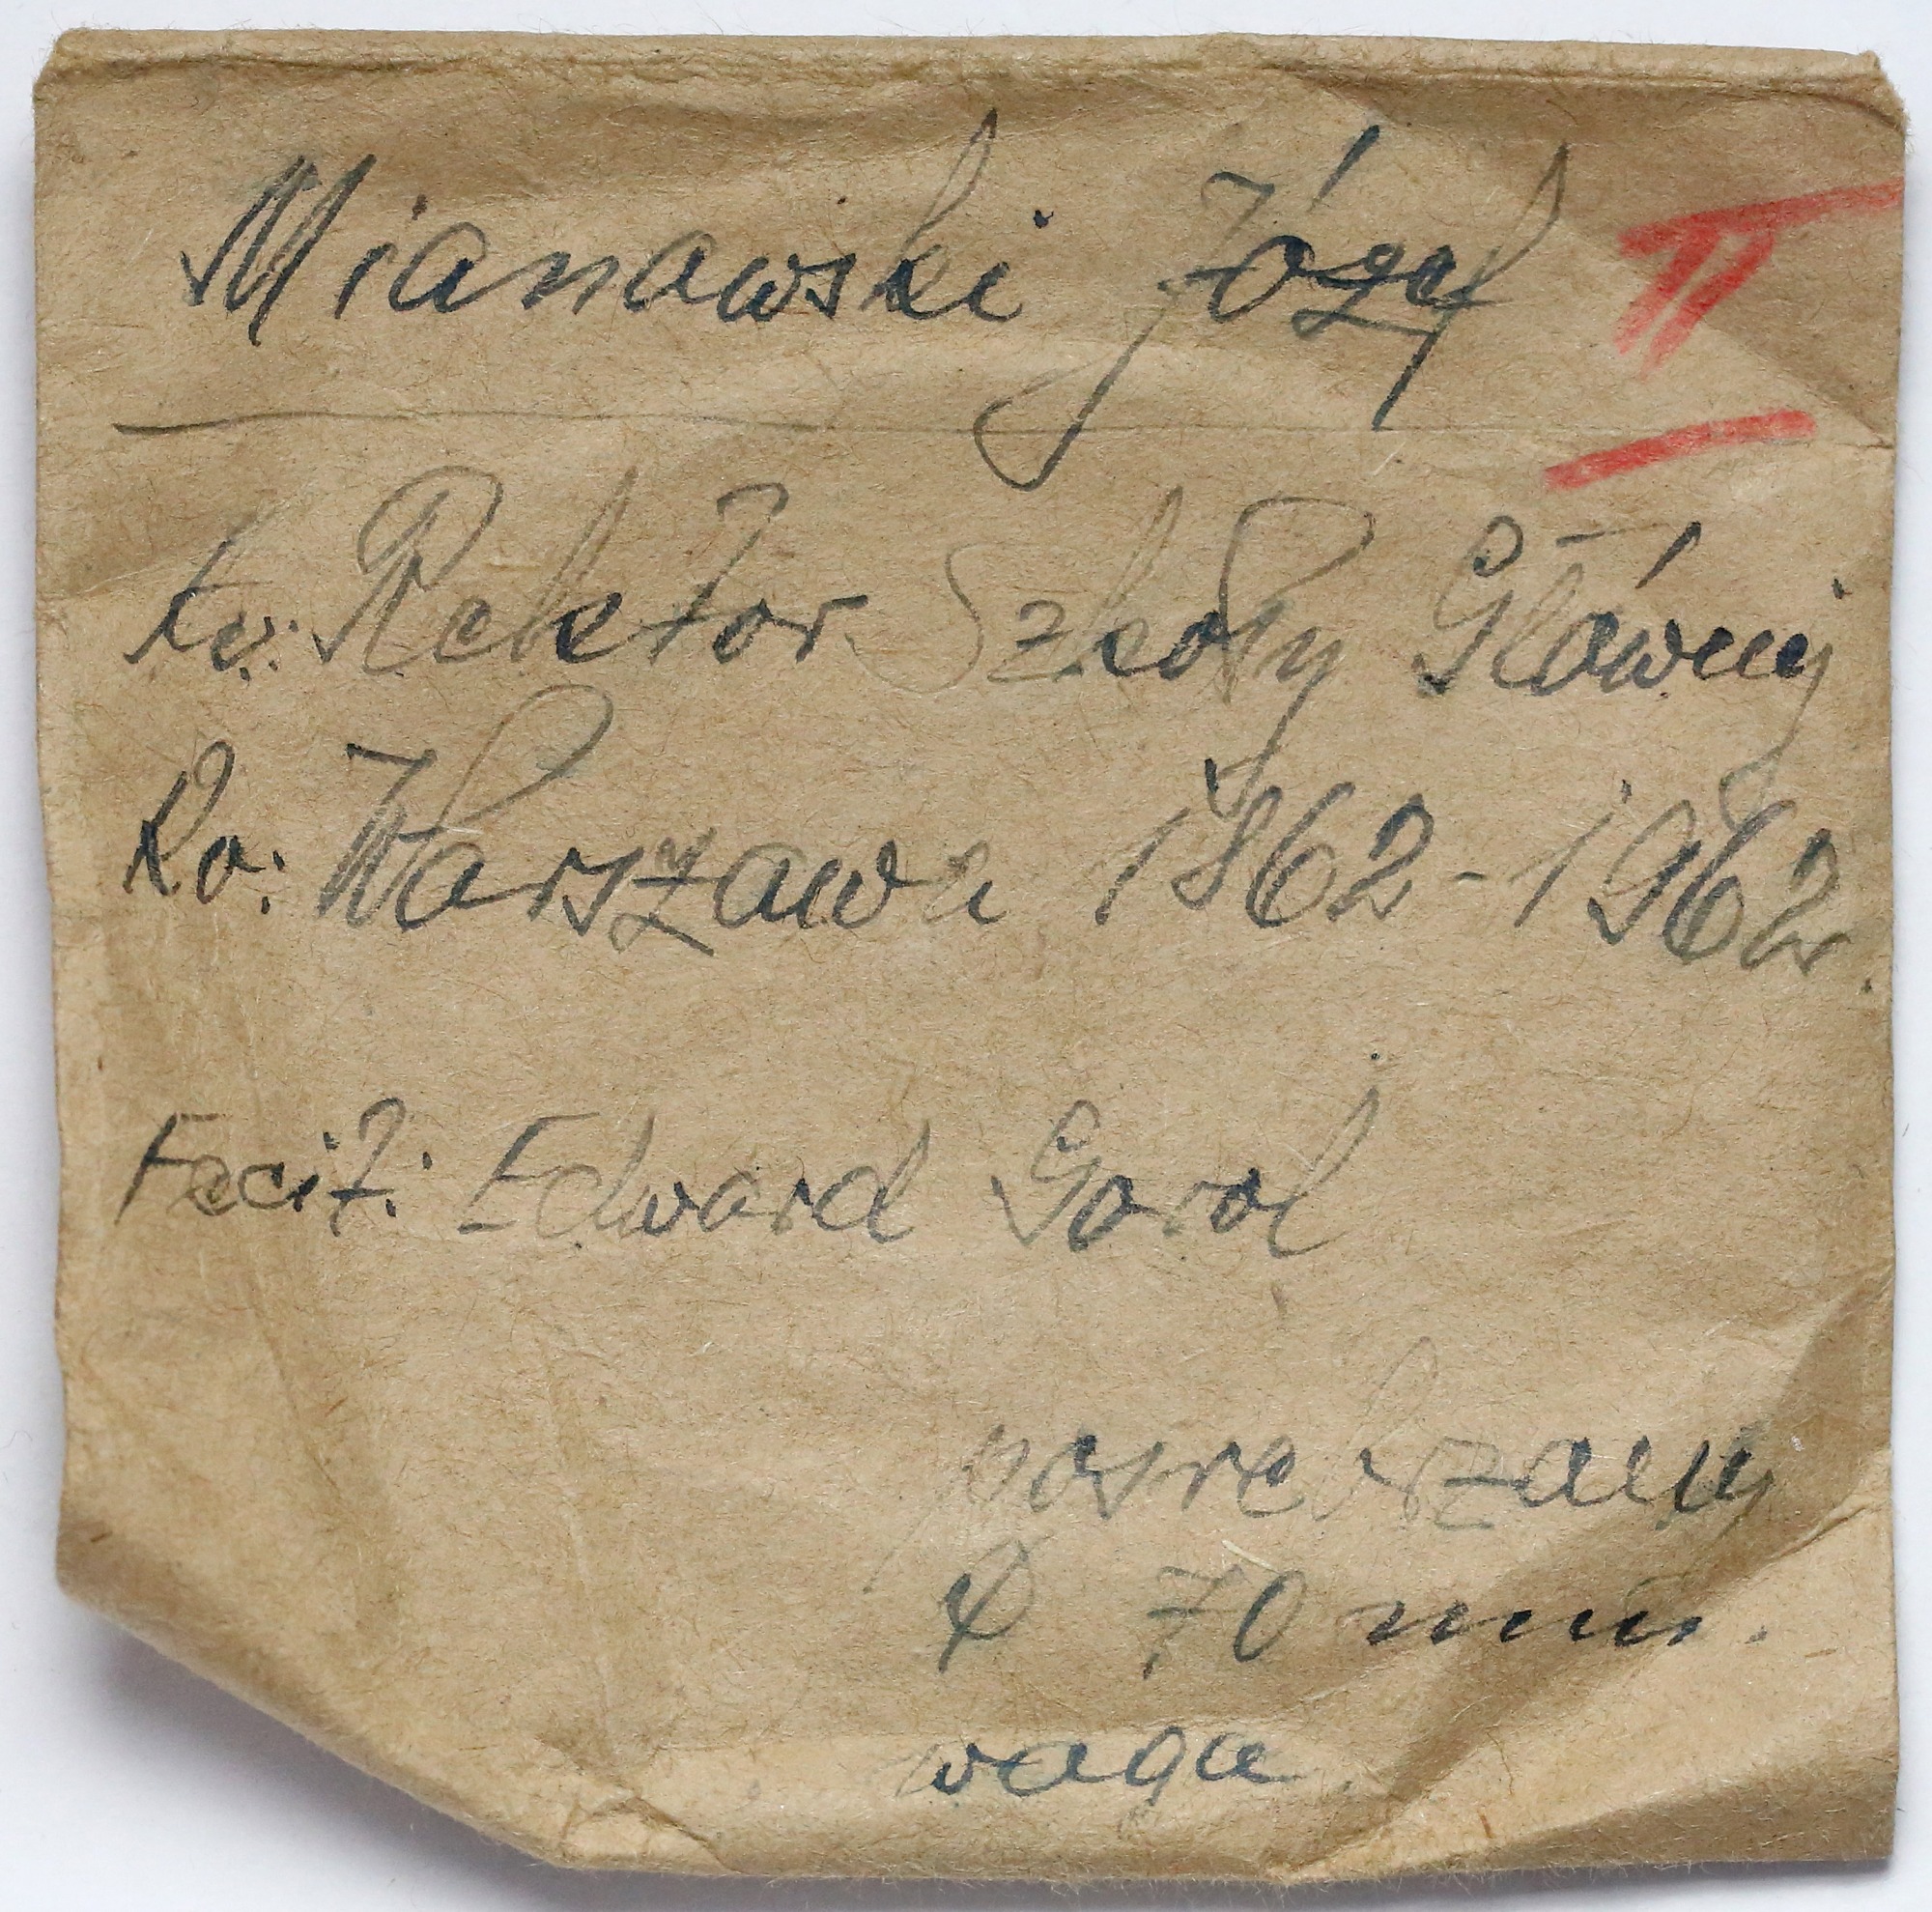 Mianowski Józef II
Av: Rektor Szkoły Głównej
Rv: Warszawa 1862-1962.
Fecit: Edward Gorol
posrebrzany
Φ 70 mm.
waga